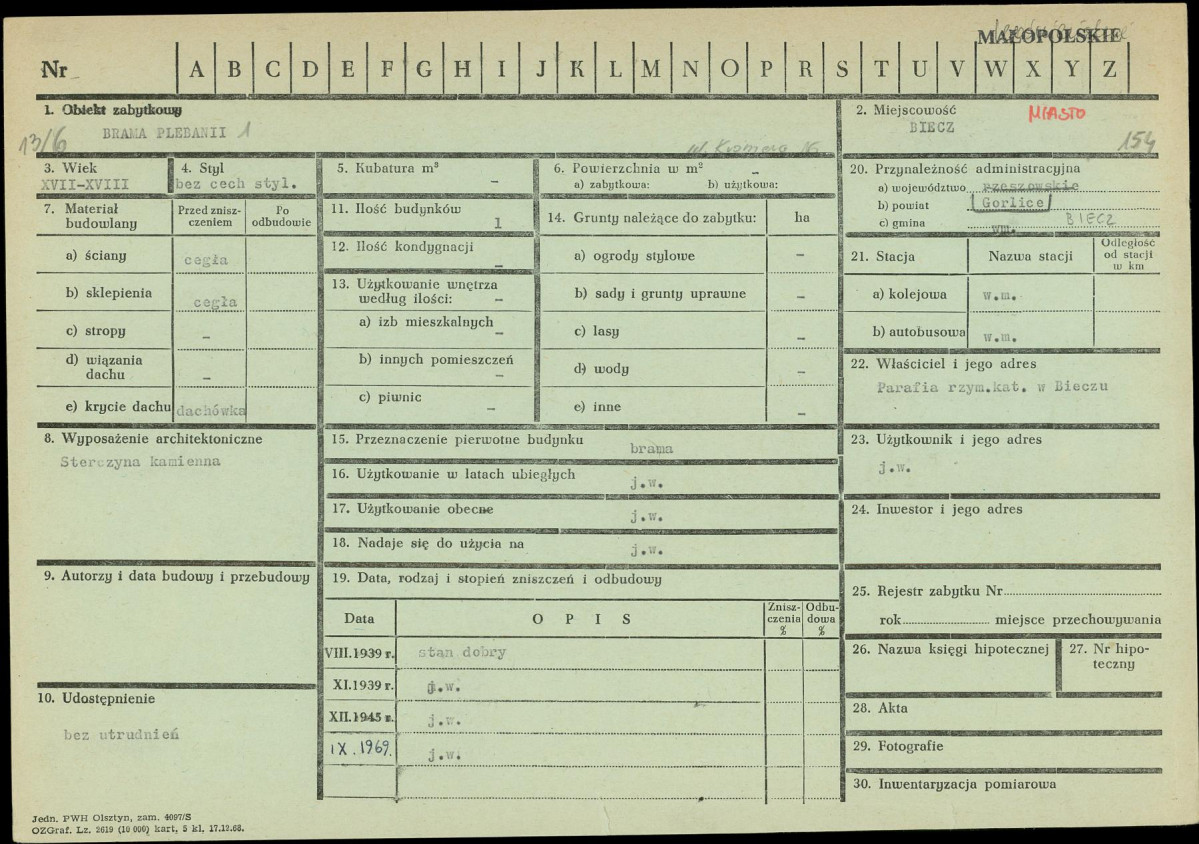 MAŁOPOLSKIE
Nr A B C D E F G H I J K L M N O P R S T U V W X Y Z
1. Obiekt zabytkowy
BRAMA PLEBANII 1
13/6
2. Miejscowość
BIECZ
MIASTO
154
3. Wiek
XVII-XVIII
4. Styl
bez cech styl.
5. Kubatura m³
–
6. Powierzchnia w m² –
a) zabytkowa: b) użytkowa:
7. Materiał budowlany
Przed znisz-
czeniem
Po
odbudowie
a) ściany cegła
b) sklepienia cegła
c) stropy –
d) wiązania
dachu –
e) krycie dachu dachówka
8. Wyposażenie architektoniczne
Sterczyna kamienna
9. Autorzy i data budowy i przebudowy
10. Udostępnienie
bez utrudnień
11. Ilość budynków
1
12. Ilość kondygnacji
–
13. Użytkowanie wnętrza
według ilości: –
a) izb mieszkalnych
–
b) innych pomieszczeń
–
c) piwnic
–
14. Grunty należące do zabytku: ha
a) ogrody stylowe –
b) sady i grunty uprawne –
c) lasy –
d) wody –
e) inne –
15. Przeznaczenie pierwotne budynku
brama
16. Użytkowanie w latach ubiegłych
j.w.
17. Użytkowanie obecne
j.w.
18. Nadaje się do użycia na
j.w.
19. Data, rodzaj i stopień zniszczeń i odbudowy
Data OPIS Znisz-
czenia
% Odbu-
dowa
%
VIII.1939 r. stan dobry
XI.1939 r. j.w.
XII.1945 r. j.w.
IX.1969. j.w.
20. Przynależność administracyjna
a) województwo rzeszowskie
b) powiat Gorlice
c) gmina wm. BIECZ
21. Stacja Nazwa stacji Odległość
od stacji
w km
a) kolejowa w.m.
b) autobusowa w.m.
22. Właściciel i jego adres
Parafia rzym.kat. w Bieczu
23. Użytkownik i jego adres
j.w.
24. Inwestor i jego adres
25. Rejestr zabytku Nr
rok miejsce przechowywania
26. Nazwa księgi hipotecznej
27. Nr hipo-
teczny
28. Akta
29. Fotografie
30. Inwentaryzacja pomiarowa
Jedn. PWH Olsztyn, zam. 4097/S
OZGraf. Lz. 2619 (10 000) kart. 5 kl. 17.12.68.